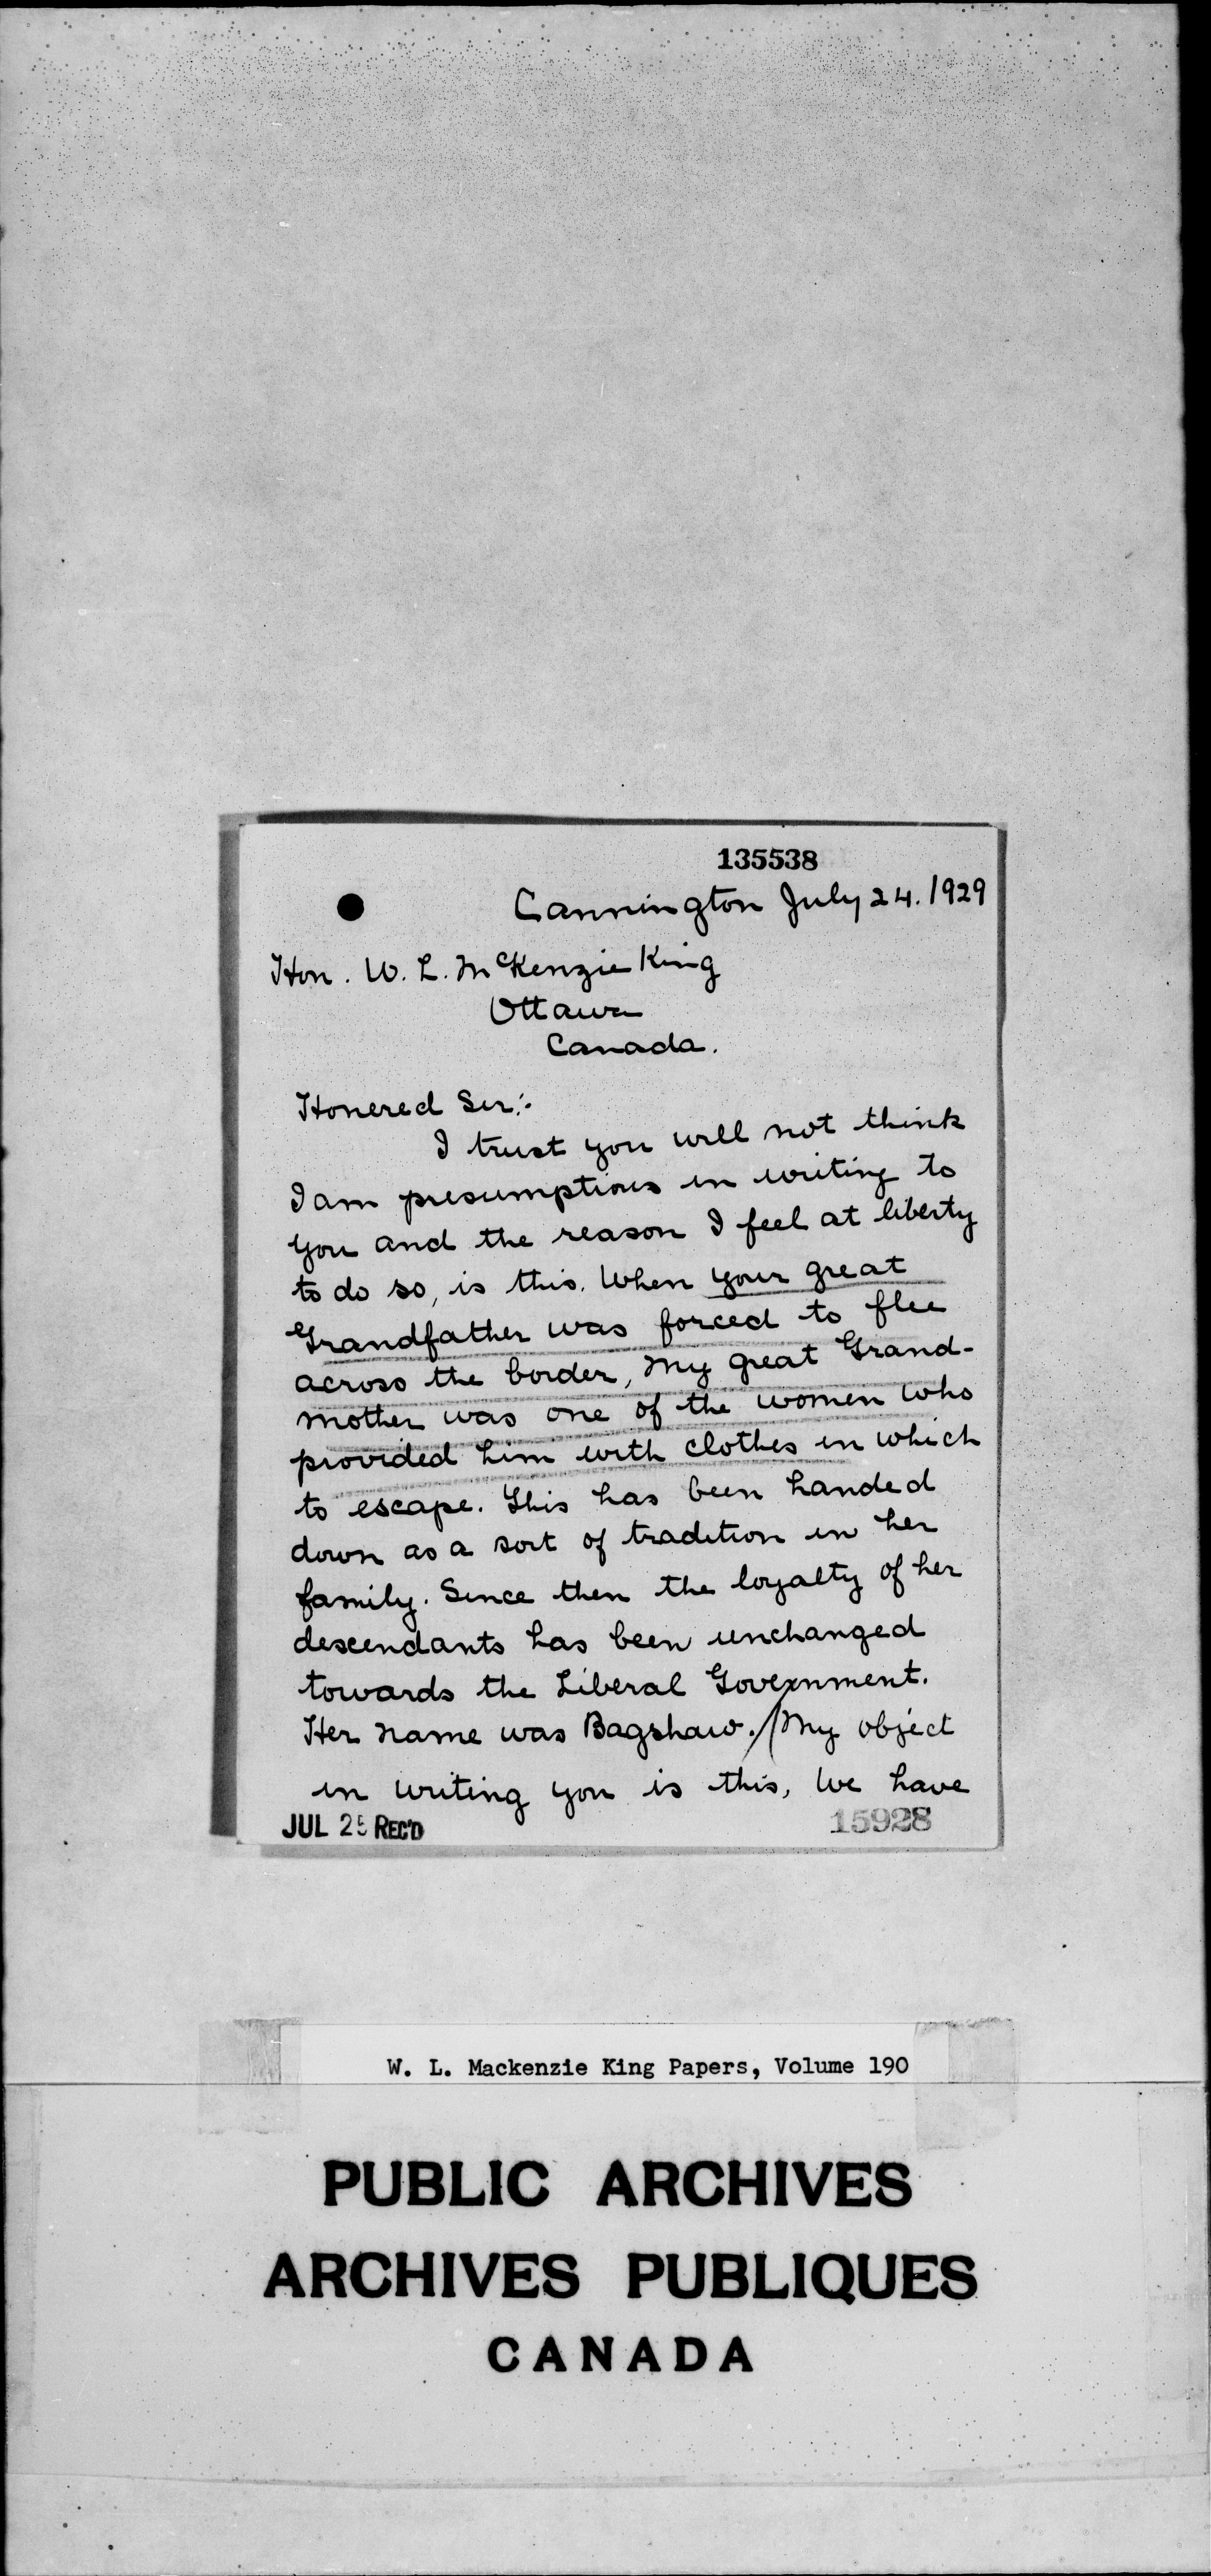 135538
Cannington July 24. 1929
Hon. W. L. McKenzie King
Ottawa
Canada.
Honered Sir:-
I trust you will not think
I am presumptious in writing to
you and the reason I feel at liberty
to do so, is this. When your great
Grandfather was forced to flee
across the border, my great Grand-
mother was one of the women who
provided him with clothes in which
to escape. This has been handed
down as a sort of tradition in her
family. Since then the loyalty of her
descendants has been unchanged
towards the Liberal Government.
Her name was Bagshaw. / My object
in writing you is this, We have
JUL 25 REC'D
15928
W. L. Mackenzie King Papers, Volume 190
PUBLIC ARCHIVES
ARCHIVES PUBLIQUES
CANADA